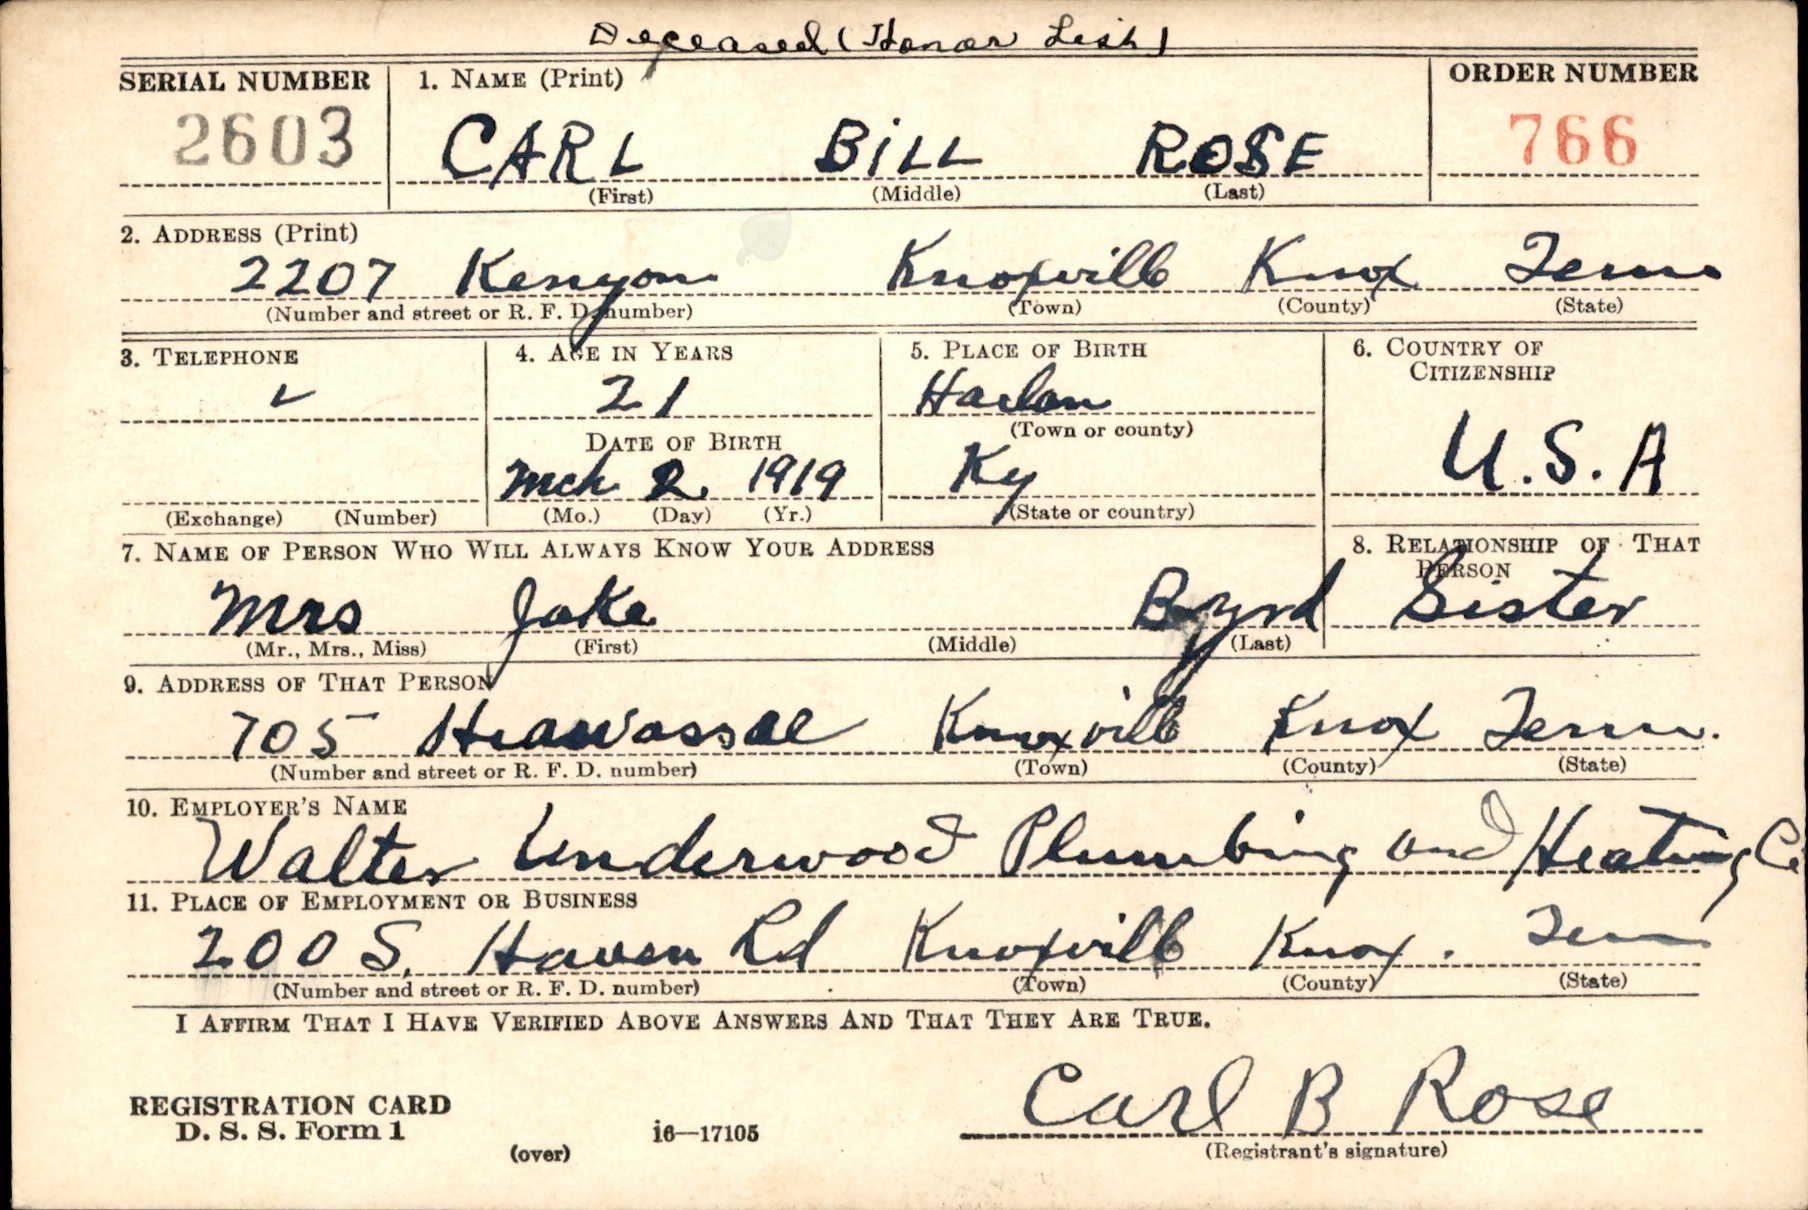 Deceased (Honor List)
SERIAL NUMBER 1. NAME (Print) ORDER NUMBER
2603 CARL BILL ROSE 766
(First) (Middle) (Last)
2. ADDRESS (Print)
2207 Kenyon Knoxville Knox Tenn
(Number and street or R. F. D. number) (Town) (County) (State)
3. TELEPHONE 4. AGE IN YEARS 5. PLACE OF BIRTH 6. COUNTRY OF CITIZENSHIP
21 Harlan
(Town or county)
DATE OF BIRTH U.S.A
Mch 2 1919 Ky
(Exchange) (Number) (Mo.) (Day) (Yr.) (State or country)
7. NAME OF PERSON WHO WILL ALWAYS KNOW YOUR ADDRESS 8. RELATIONSHIP OF THAT PERSON
Mrs Jake Byrd Sister
(Mr., Mrs., Miss) (First) (Middle) (Last)
9. ADDRESS OF THAT PERSON
705 Hiawassae Knoxville Knox Tenn.
(Number and street or R. F. D. number) (Town) (County) (State)
10. EMPLOYER'S NAME
Walter Underwood Plumbing and Heating Co
11. PLACE OF EMPLOYMENT OR BUSINESS
200 S. Haven Rd Knoxville Knox. Tenn
(Number and street or R. F. D. number) (Town) (County) (State)
I AFFIRM THAT I HAVE VERIFIED ABOVE ANSWERS AND THAT THEY ARE TRUE.
Carl B Rose
REGISTRATION CARD
D. S. S. Form 1 16—17105
(over) (Registrant's signature)